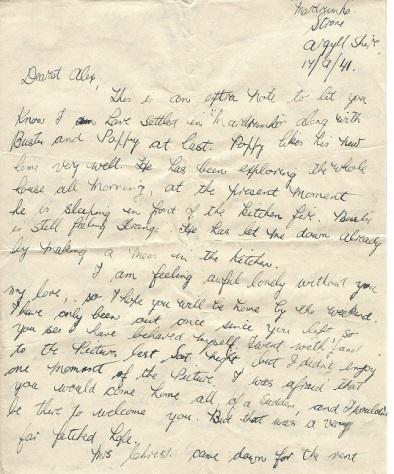 Strone
Argyll Shire.
14/9/41.
Dearest Alex,
This is an extra note to let you
know I am here settled in "Mardrunho" along with
Buster and Poppy at last. Poppy likes his new
home very well. He has been exploring the whole
house all morning, at the present moment
he is sleeping in front of the kitchen fire. Buster
is still feeling strange. He has let me down already
by making a mess in the kitchen.
I am feeling awful lonely without you
my love, so I hope you will be home by the weekend.
I have only been out once since you left so
you see I have behaved myself. I went with
to the Pictures last Sat night but I didn't enjoy
one moment of the Picture. I was afraid that
you would come home all of a sudden, and I wouldn't
be there to welcome you. But that was a very
far fetched hope.
Mrs came down for the rent